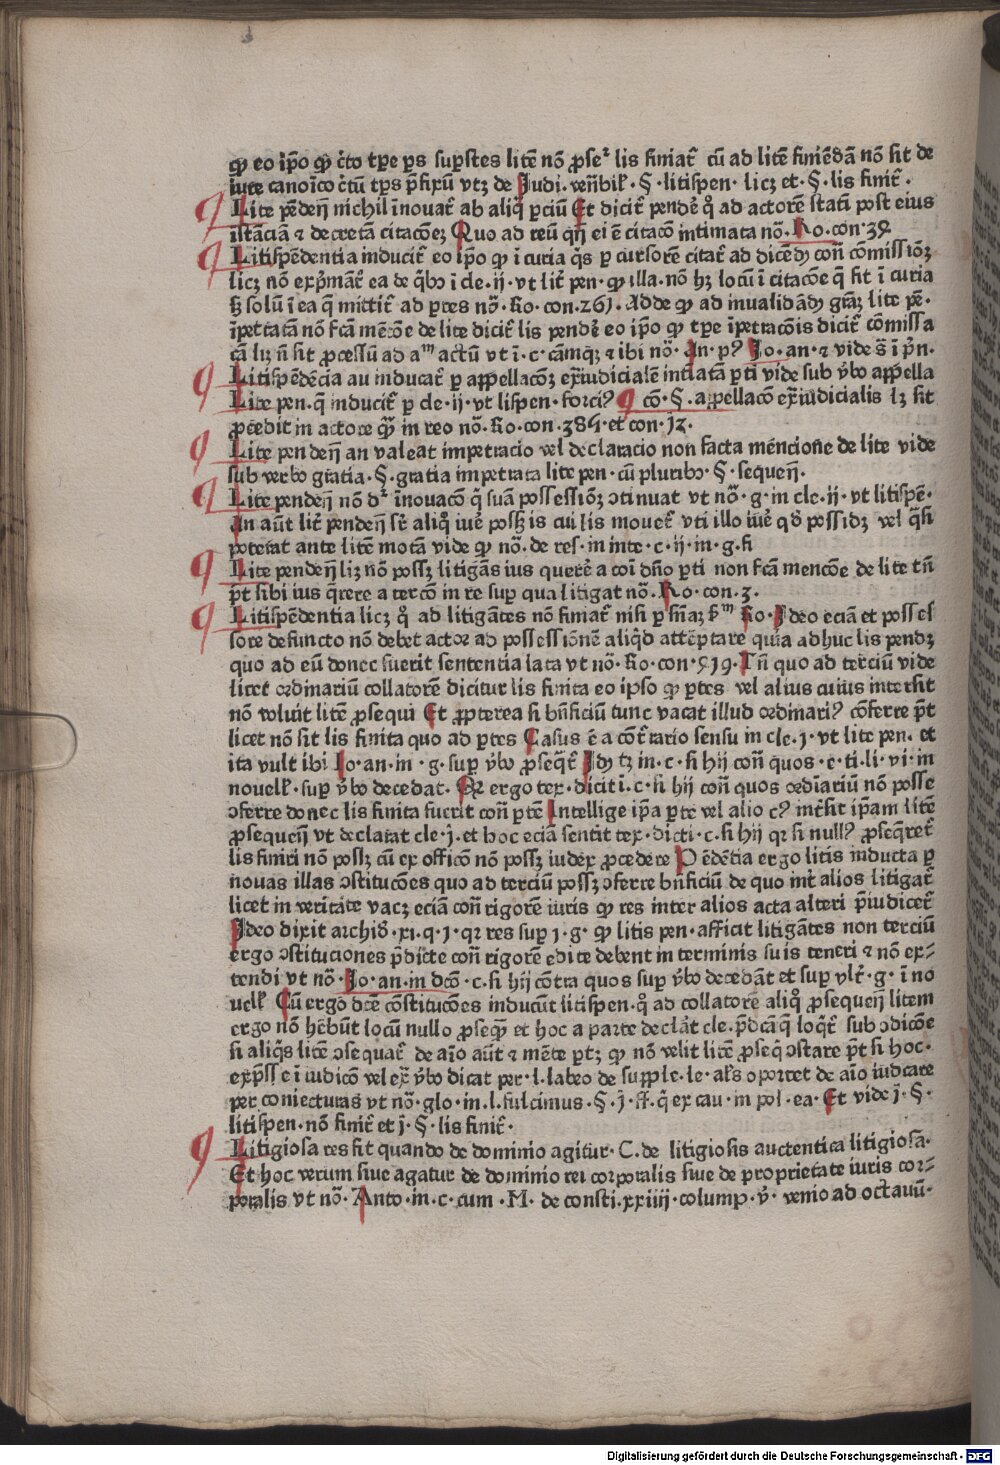 qp eo ip̄o qp c̄to tp̄e ꝑs suꝑstes litē nō ꝓseꝛ lis finiat᷑ cū ad litē finiēdā nō sit de
iure canoīco c̄tū tp̄s p̄fixū vtꝫ de Judi. ven̄bil᷑. §. litispen. licꝫ et. §. lis finit᷑.
Lite pēden̄ nichil īnouat᷑ ab aliq̊ ꝑciū Et dicit᷑ pendē q̊ ad actorē statī post eius
īstāciā ⁊ decretā citacōeꝫ Quo ad reū qn̄ ei ē citacō intimata nō. Ro. con. 39
Litispēdentia inducit᷑ eo ip̄o qp ī curia q̄s ꝑ cursorē citat᷑ ad dicēdū con̄ cōmissiōꝫ
licꝫ nō exp̄mat᷑ ea de q̄bꝰ ī cle. ij. vt lit᷑ pen. qp illa. nō hꝫ locū ī citacōe q̄ fit ī curia
sꝫ solū ī ea q̄ mittit᷑ ad ꝑtes nō. Ro. con. 261. Adde qp ad inualidādū gr̄aꝫ lite pē.
īpetratā nō fc̄ā mēcōe de lite dicit᷑ lis pendē eo ip̄o qp tp̄e īpetracōis dicit᷑ cōmissa
cā lꝫ n̄ sit ꝓcessū ad aᵐ actū vt ī. c. cāmqꝫ ⁊ ibi nō. An. pꝰ Jo. an. ⁊ vide s̄ ī p̄n.
Litispēdēcia an inducat᷑ ꝑ appellacōꝫ ex̄iudicialē int̄iatā ꝑti vide sub v̄bo appella
Lite pen. q̄ inducit᷑ ꝑ cle. ij. vt lispen. forciꝰ cō. §. appellacō ex̄iudicialis lꝫ sit
ꝓcedit in actore qꝫ in reo nō. Ro. con. 384. et con. 12.
Lite penden̄ an valeat impetracio vel declaracio non facta mencione de lite vide
sub verbo gratia. §. gratia impetrata lite pen. cū pluribꝰ. §. sequen̄.
Lite penden̄ nō dꝛ īnouacō q̄ suā possessiōꝫ ↄtinuat vt nō. g. in cle. ij. vt litispē.
An aūt lit᷑ penden̄ st̄ aliq̊ iuē possꝫ is cui lis mouet᷑ vti illo iuē qd̊ possidꝫ vel q̄si
poterat ante litē motā vide qp nō. de res. in inte. c. ij. in. g. fi
Lite penden̄ lꝫ nō possꝫ litigās ius querē a coī dn̄o ꝑti non fc̄ā mencōe de lite tn̄
p̄t sibi ius q̄rere a tercō in re suꝑ qua litigat nō. Ro. con. 3.
Litispēdentia licꝫ q̊ ad litigātes nō finiat᷑ nisi ꝑ sn̄iaꝫ s̄ᵐ Ro. Ideo eciā et posses
sore defuncto nō debet actor ad possessionē aliqd̊ attēptare quia adhuc lis pendꝫ
quo ad eū donec fuerit sententia lata vt nō. Ro. con. 919. Tn̄ quo ad terciū vide
licet ordinariū collatorē dicitur lis finita eo ipso qp ꝑtes vel alius cuius intersit
nō voluit litē ꝓsequi Et ꝓpterea si bn̄ficiū tunc vacat illud ordinariꝰ cōferre p̄t
licet nō sit lis finita quo ad ꝑtes Casus ē a cōtrario sensu in cle. j. vt lite pen. et
ita vult ibi Jo. an. in. g. suꝑ v̄bo ꝓseq̄t᷑ Jdē tꝫ in. c. si hij con̄ quos. e. ti. li. vi. in
nouell᷑. suꝑ v̄bo decedat. Qr ergo tex. dicit ī. c. si hij con̄ quos ordiariū nō posse
ↄferre donec lis finita fuerit con̄ ꝑtē Intellige ip̄a ꝑte vel alio cꝰ int̄sit ip̄am litē
ꝓsequen̄ vt declarat cle. j. et hoc eciā sentit tex. dicti. c. si hij qꝛ si nullꝰ ꝓseq̄ret᷑
lis finiri nō possꝫ cū ex officō nō possꝫ iudex ꝓcedere Pēdētia ergo litis inducta ꝑ
nouas illas ↄstitucōes quo ad terciū possꝫ ↄferre bn̄ficiū de quo int̄ alios litigat᷑
licet in veritate vacꝫ eciā con̄ rigorē iuris qp res inter alios acta alteri p̄iudicet᷑
Ideo dixit archid̄. xi. q. j. qꝛ res suꝑ j. g. qp litis pen. afficit litigātes non terciū
ergo ↄstituciones p̄dicte con̄ rigorē edite debent in terminis suis teneri ⁊ nō ex⸗
tendi vt nō. Jo. an. in dcō. c. si hij cōtra quos suꝑ v̄bo decedāt et suꝑ vlt᷑. g. ī no
uell᷑ Cū ergo dcē cōstitucōes inducūt litispen. q̊ ad collatorē aliq̊ ꝓsequen̄ litem
ergo nō hēbūt locū nullo ꝓseqꝫ et hoc a parte declāt cle. p̄dcā q̄ loq̄t᷑ sub ↄdicōe
si aliq̄s litē ↄsequat᷑ de aīo aūt ⁊ mēte ꝑtꝫ qp nō velit litē ꝓseq̄ ↄstare p̄t si hoc.
exp̄sse ī iudicō vel ex̄ v̄bo dicat per. l. labeo de supple. le. al̄s oportet de aīo iudicare
per coniecturas vt nō. glo. in. l. fulcimus. §. j. ff. q̄ ex cau. in pol. ea. Et vide j. §.
litispen. nō finit᷑ et j. §. lis finit᷑.
Litigiosa res fit quando de dominio agitur. C. de litigiosis auctentica litigiosa.
Et hoc verum siue agatur de dominio rei corporalis siue de proprietate iuris cor⸗
poralis vt nō. Anto. in. c. cum. M. de consti. xxiiij. colump. v̄. venio ad octauū.
Digitalisierung gefördert durch die Deutsche Forschungsgemeinschaft - DFG